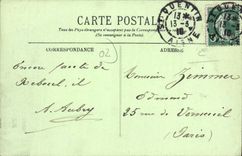 CARTE POSTALE
Tous les pays étrangers n'acceptent pas la Correspondance au recto
(Se renseigner à la Poste)
CORRESPONDANCE
ADRESSE
ST QUENTIN
AISNE
13-5
02
Encore partie de
A. Aubry
Monsieur Zimmer
Edmond
25 rue de Verneuil
(Paris)